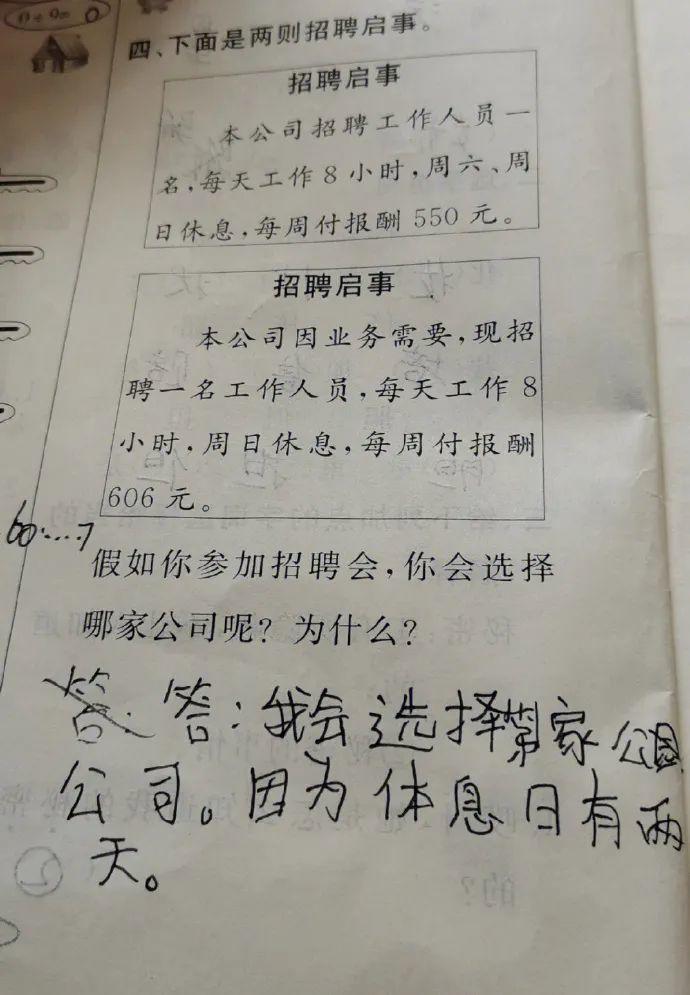 四、下面是两则招聘启事。
招聘启事
本公司招聘工作人员一
名，每天工作8小时，周六、周
日休息，每周付报酬550元。
招聘启事
本公司因业务需要，现招
聘一名工作人员，每天工作8
小时，周日休息，每周付报酬
606元。
60……7
假如你参加招聘会，你会选择
哪家公司呢？为什么？
答：我会选择第家公
公司。因为体息日有两
天。
2